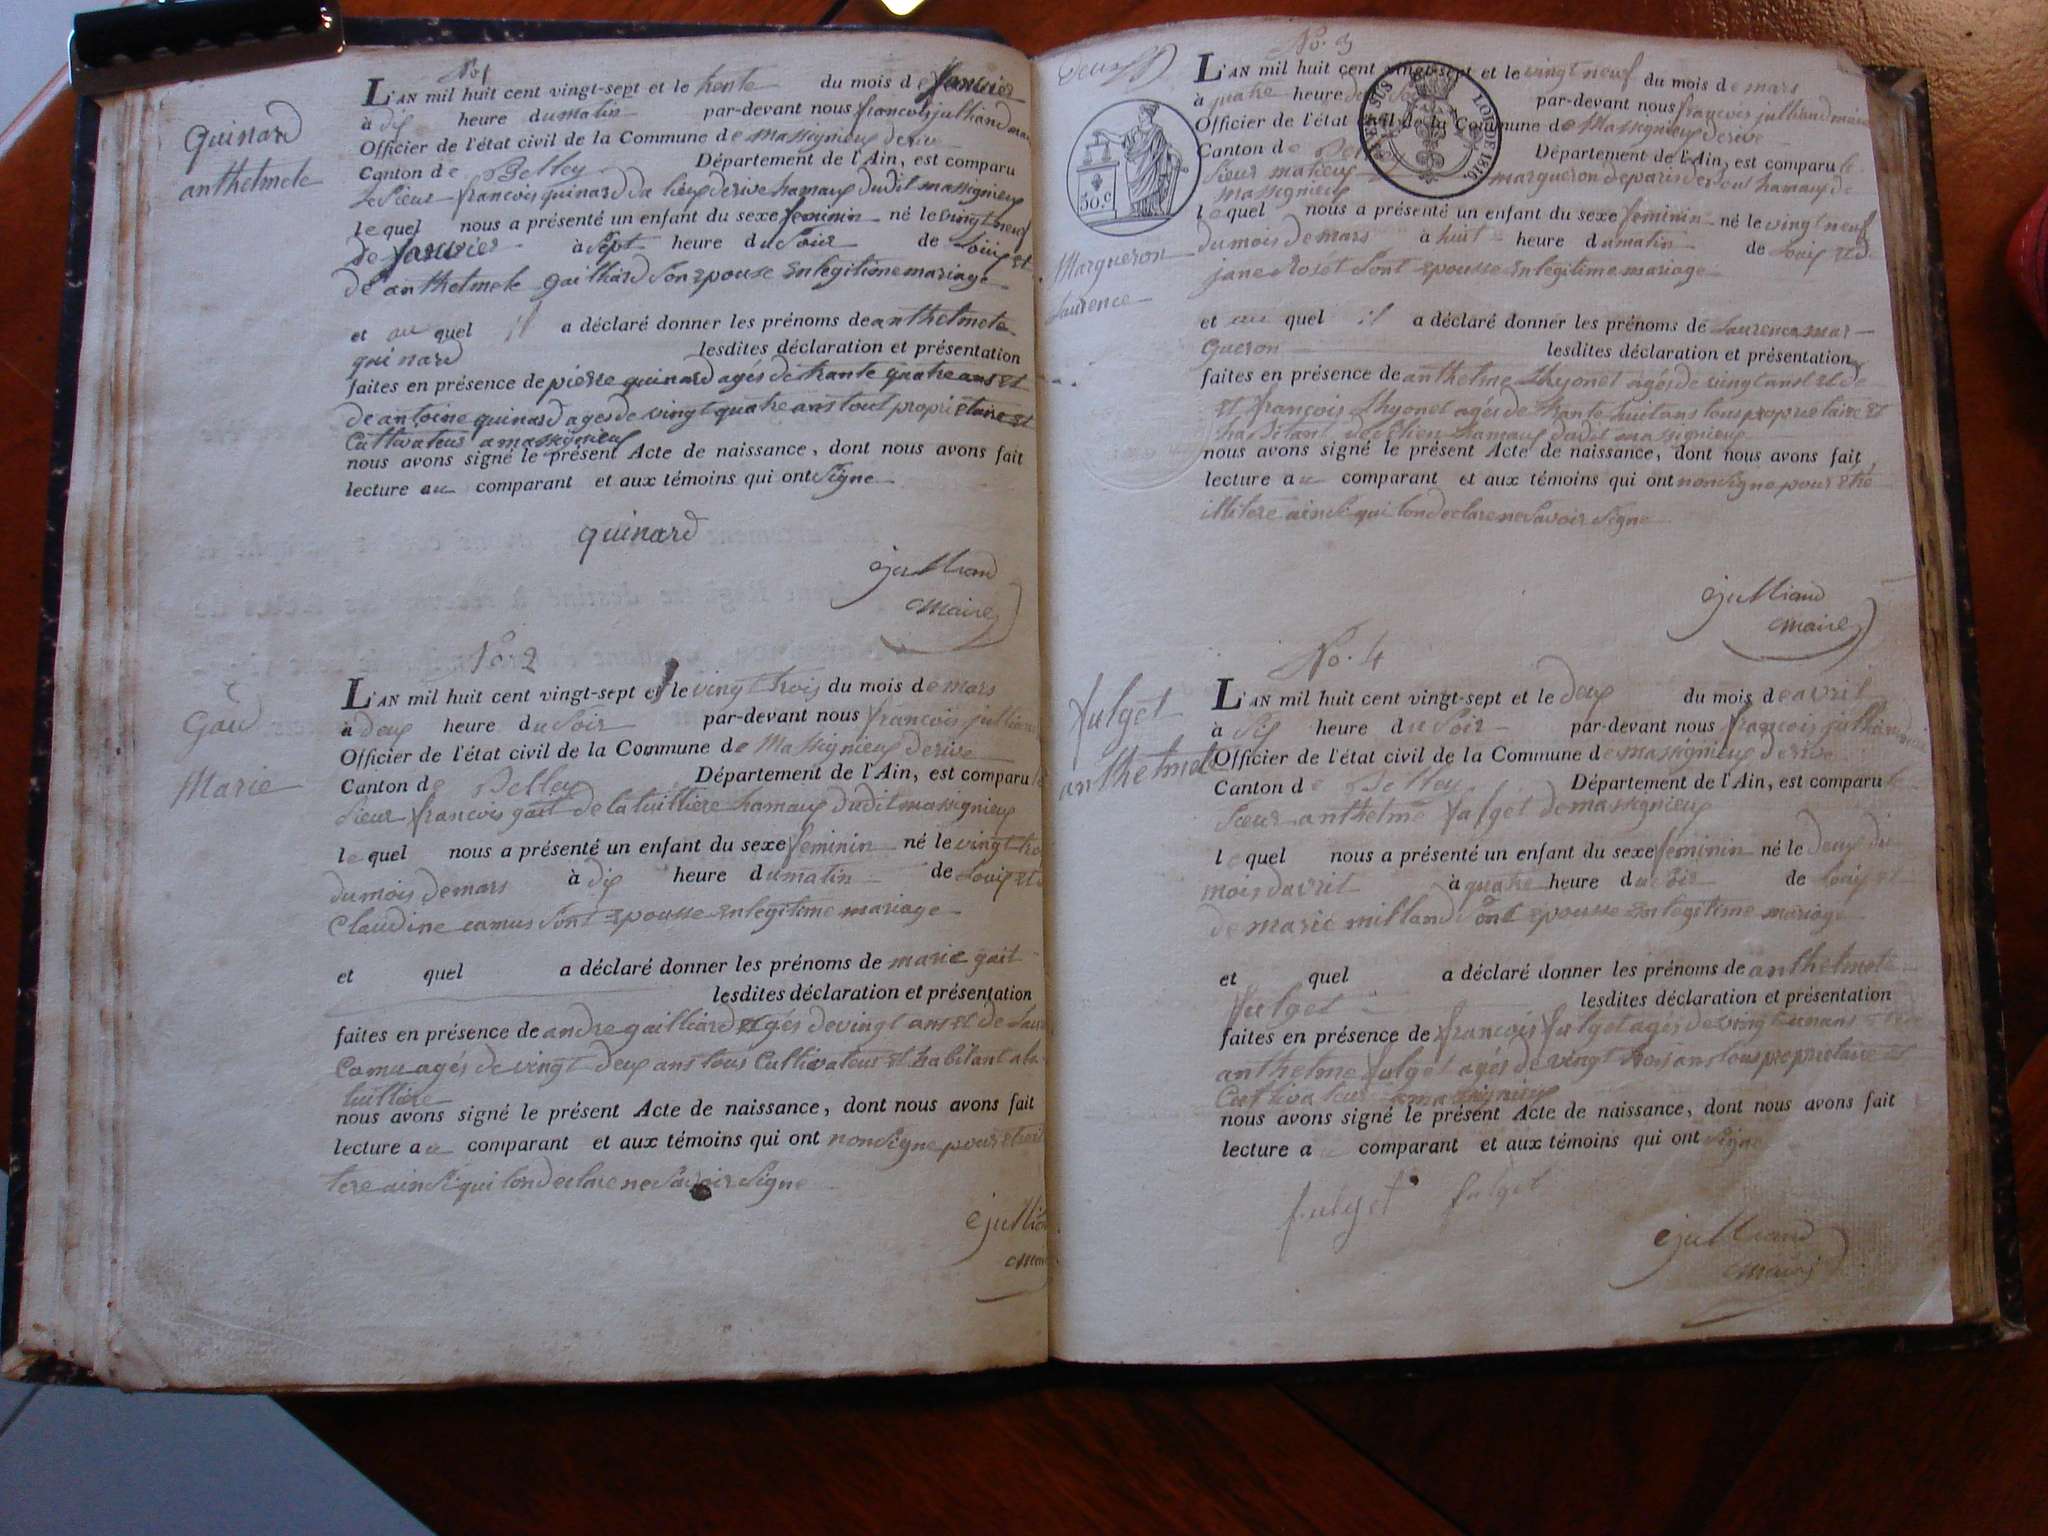 No. 1
Quinard
anthelmete
L'AN mil huit cent vingt-sept et le trente du mois de janvier
à dix heure du matin par-devant nous francois julliand maire
Officier de l'état civil de la Commune de massignieux derive
Canton de Belley Département de l'Ain, est comparu
Le sieur francois quinard du lieux derive hamaux dudit massignieux
lequel nous a présenté un enfant du sexe feminin né le vingt neuf
de janvier à sept heure du soir de Louix et
de anthelmete gailliard son epouse en legitime mariage
et au quel il a déclaré donner les prénoms de anthelmete
quinard lesdites déclaration et présentation
faites en présence de pierre quinard agés de trante quatre ans et
de antoine quinard ages de vingt quatre ans tout proprietaire et
Cultivateur a massignieux
nous avons signé le présent Acte de naissance, dont nous avons fait
lecture au comparant et aux témoins qui ont signe
quinard
ejulliand
maire
No. 2
Gau
Marie
L'AN mil huit cent vingt-sept et le vingt trois du mois de mars
à deux heure du soir par-devant nous francois julliand
Officier de l'état civil de la Commune de Massignieux derive
Canton de Belley Département de l'Ain, est comparu le
sieur francois gait de la tuilliere hamaux dudit massignieux
lequel nous a présenté un enfant du sexe feminin né le vingt tro
du mois de mars à dix heure du matin de Louix et d
Claudine camus sont epousse en legitime mariage
et quel a déclaré donner les prénoms de marie gait
lesdites déclaration et présentation
faites en présence de andre gailliard agés de vingt ans et de
Camu agés de vingt deux ans tous Cultivateur et habitant a la
tuilliere
nous avons signé le présent Acte de naissance, dont nous avons fait
lecture au comparant et aux témoins qui ont non signe pour
tere ainsi qui lon declare ne savoir signe
ejulliand
maire
No. 3
30.c
LOI DE 1816
Margueron
Laurence
L'AN mil huit cent vingt-sept et le vingt neuf du mois de mars
à quatre heure du soir par-devant nous francois julliand maire
Officier de l'état civil de la Commune de Massignieux derive
Canton de Belley Département de l'Ain, est comparu le
sieur margueron hamaux de
massignieux
lequel nous a présenté un enfant du sexe feminin né le vingt neuf
du mois de mars à huit heure du matin de Louix et de
jane Rosét sont epousse en legitime mariage
et au quel il a déclaré donner les prénoms de Laurence mar
gueron lesdites déclaration et présentation
faites en présence de anthelme thyonet agés de vingt ans et de
et francois thyonet agés de trante huit ans tous proprietaire et
habitant hamaux dudit massignieux
nous avons signé le présent Acte de naissance, dont nous avons fait
lecture au comparant et aux témoins qui ont non signe pour etre
illitere ainsi qui lon declare ne savoir signe
ejulliand
maire
No. 4
fulget
anthelmete
L'AN mil huit cent vingt-sept et le deux du mois de avril
à six heure du soir par-devant nous francois julliand maire
Officier de l'état civil de la Commune de massignieux derive
Canton de Belley Département de l'Ain, est comparu le
sieur anthelme fulget de massignieux
lequel nous a présenté un enfant du sexe feminin né le deux du
mois davril à quatre heure du soir de Louix et
de marie milland sont epousse en legitime mariage
et quel a déclaré donner les prénoms de anthelmete
fulget lesdites déclaration et présentation
faites en présence de francois fulget agés de vingt un ans et de
anthelme fulget agés de vingt trois ans tous proprietaire et
Cultivateur a massignieux
nous avons signé le présent Acte de naissance, dont nous avons fait
lecture a comparant et aux témoins qui ont signe
fulget fulget
ejulliand
maire